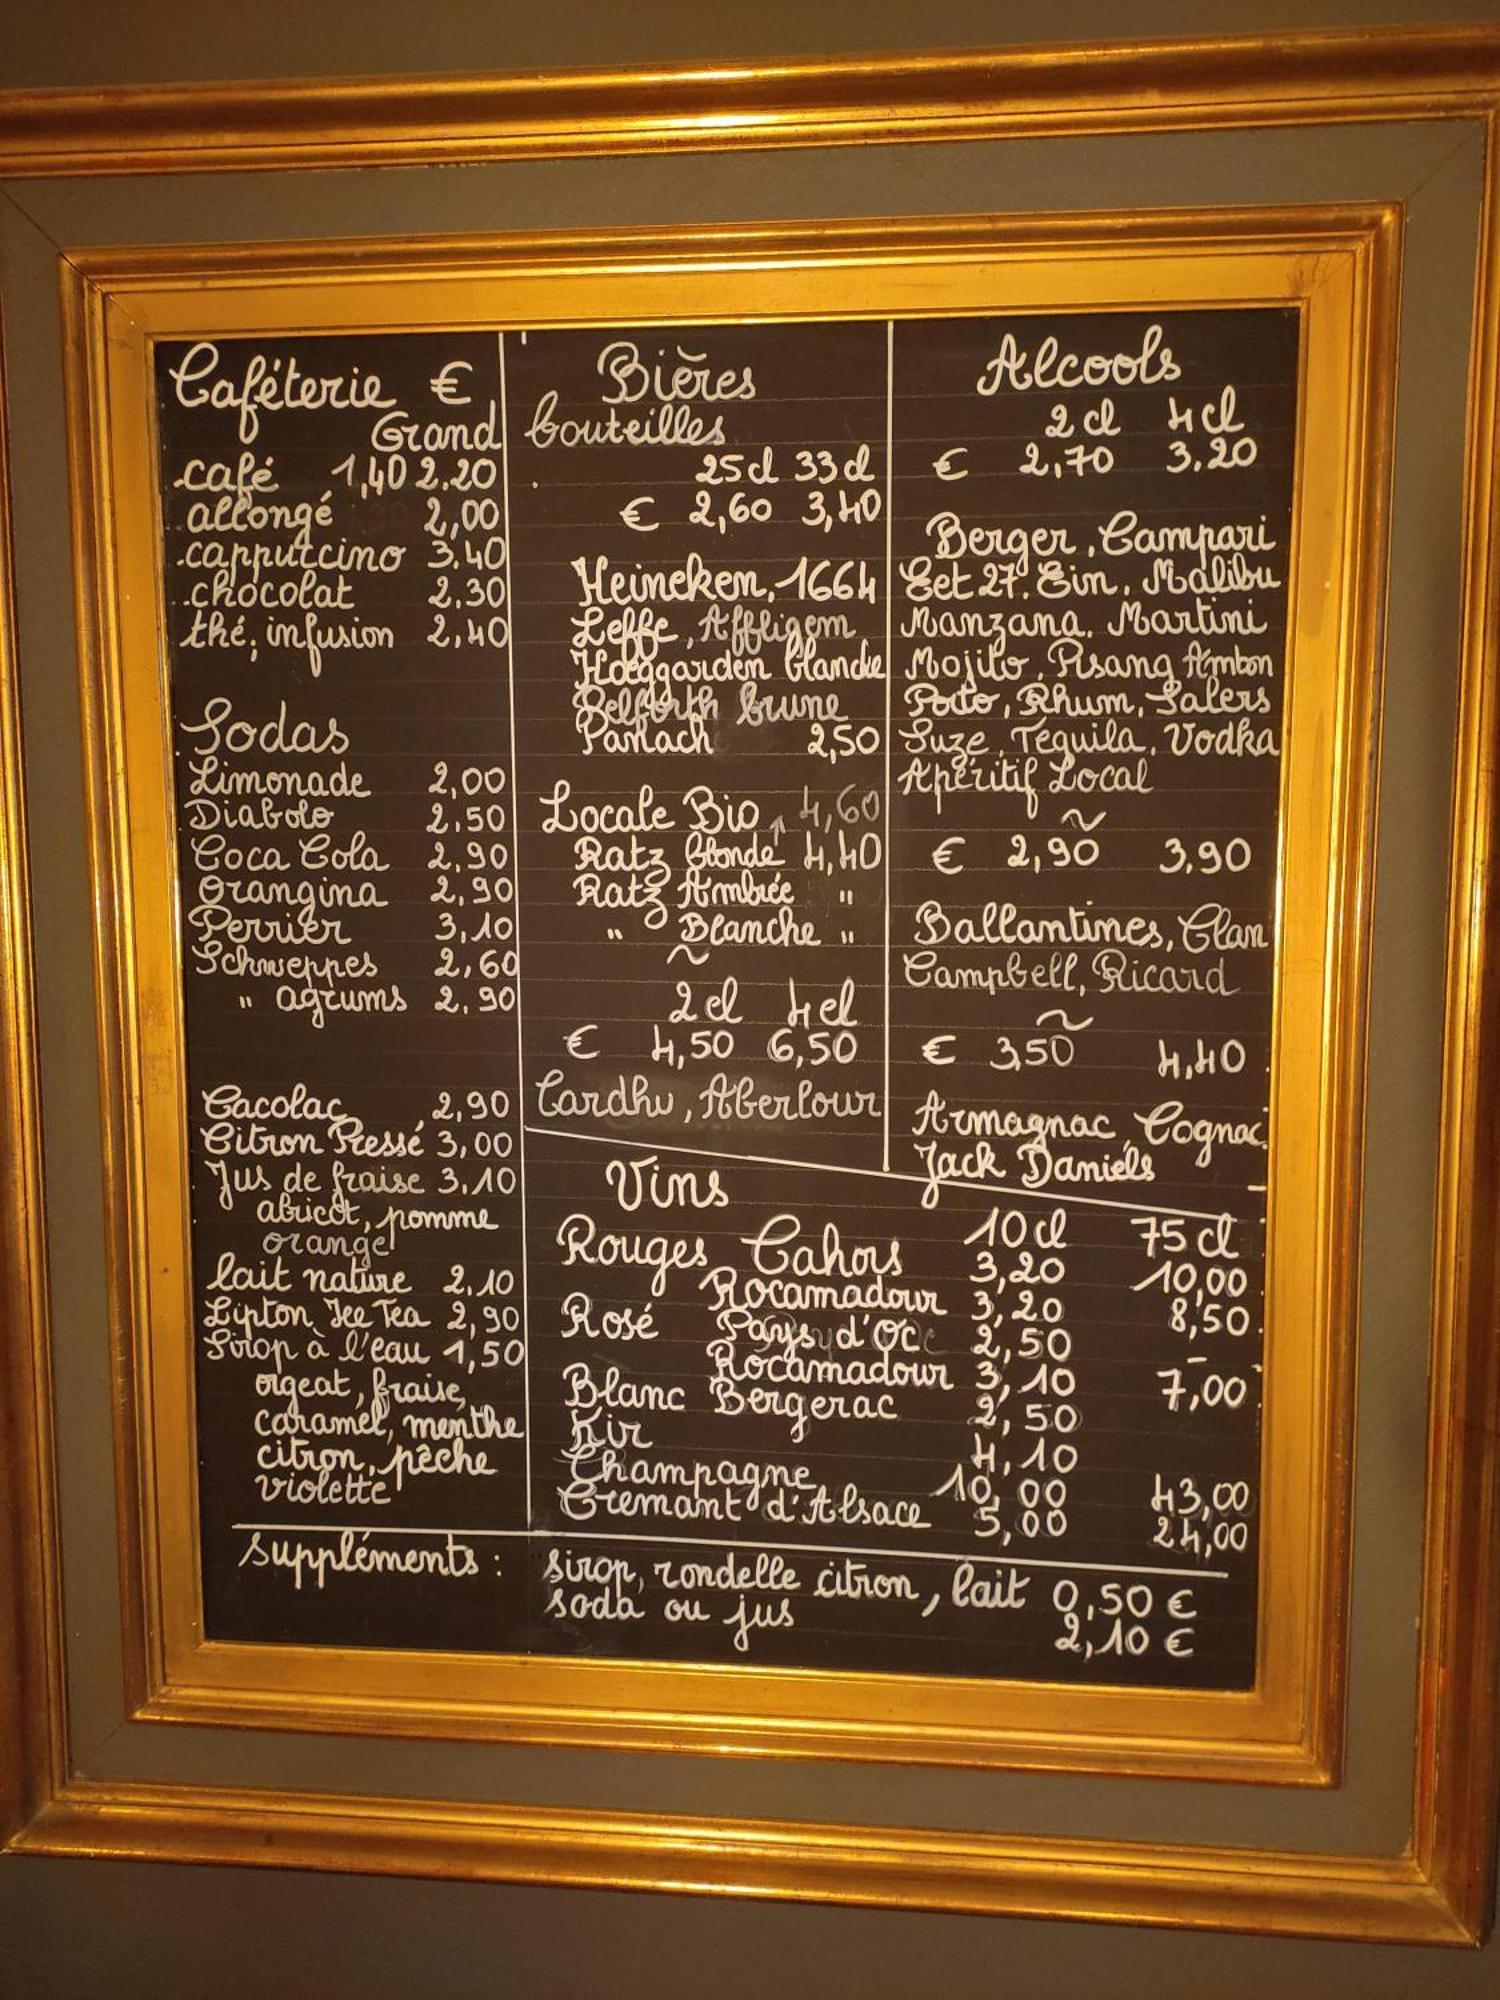 Caféterie €
Grand
café 1,40 2.20
allongé 2,00
cappuccino 3.40
chocolat 2,30
thé, infusion 2,40
Sodas
Limonade 2,00
Diabolo 2,50
Coca Cola 2,90
Orangina 2,90
Perrier 3,10
Schweppes 2,60
" agrums 2,90
Cacolac 2,90
Citron Pressé 3,00
Jus de fraise 3,10
abricot, pomme
orange
lait nature 2,10
Lipton Ice Tea 2,90
Sirop à l'eau 1,50
orgeat, fraise,
caramel, menthe
citron, pêche
violette
Bières
bouteilles
25cl 33cl
€ 2,60 3,40
Heineken, 1664
Leffe, Affligem
Hoeggarden blanche
Belforth brune
Panach 2,50
Locale Bio ↑ 4,60
Ratz blonde 4,40
Ratz Ambrée "
" Blanche "
~
2 cl 4 cl
€ 4,50 6,50
Cardhu, Aberlour
Alcools
2 cl 4 cl
€ 2,70 3,20
Berger, Campari
Get 27. Gin, Malibu
Manzana. Martini
Mojito, Pisang Ambon
Poto, Rhum, Salers
Suze, Téquila, Vodka
Apéritif Local
~
€ 2,90 3,90
Ballantines, Clan
Campbell, Ricard
~
€ 3,50 4,40
Armagnac, Cognac
Jack Daniels
Vins
10 cl 75 cl
Rouges Cahors 3,20 10,00
Rocamadour 3,20 8,50
Rosé Pays d'Oc 2,50 -
Rocamadour 3,10 7,00
Blanc Bergerac 2,50
Kir 4,10
Champagne 10,00 43,00
Crémant d'Alsace 5,00 24,00
Suppléments : sirop, rondelle citron, lait 0,50 €
soda ou jus 2,10 €